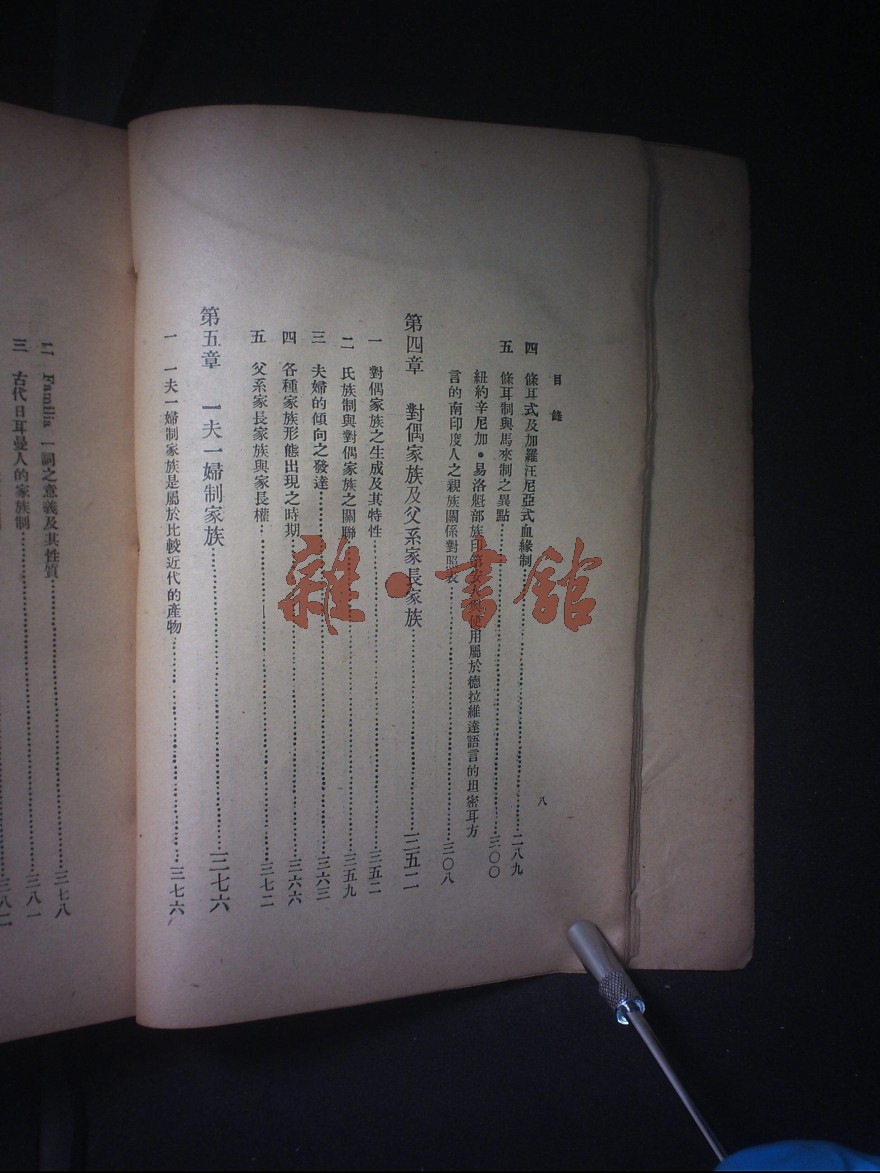 目錄
八
四 條耳式及加羅汪尼亞式血緣制……二八九
五 條耳制與馬來制之異點……三〇〇
紐約辛尼加•易洛魁部族印第安人與使用屬於德拉維達語言的坦密耳方
言的南印度人之親族關係對照表……三〇八
第四章 對偶家族及父系家長家族……三五二
一 對偶家族之生成及其特性……三五二
二 氏族制與對偶家族之關聯……三五九
三 夫婦的傾向之發達……三六三
四 各種家族形態出現之時期……三六六
五 父系家長家族與家長權……三七二
第五章 一夫一婦制家族……三七六
一 一夫一婦制家族是屬於比較近代的產物……三七六
二 Familia 一詞之意義及其性質……三七八
三 古代日耳曼人的家族制……三八一
三八二
雜•書館